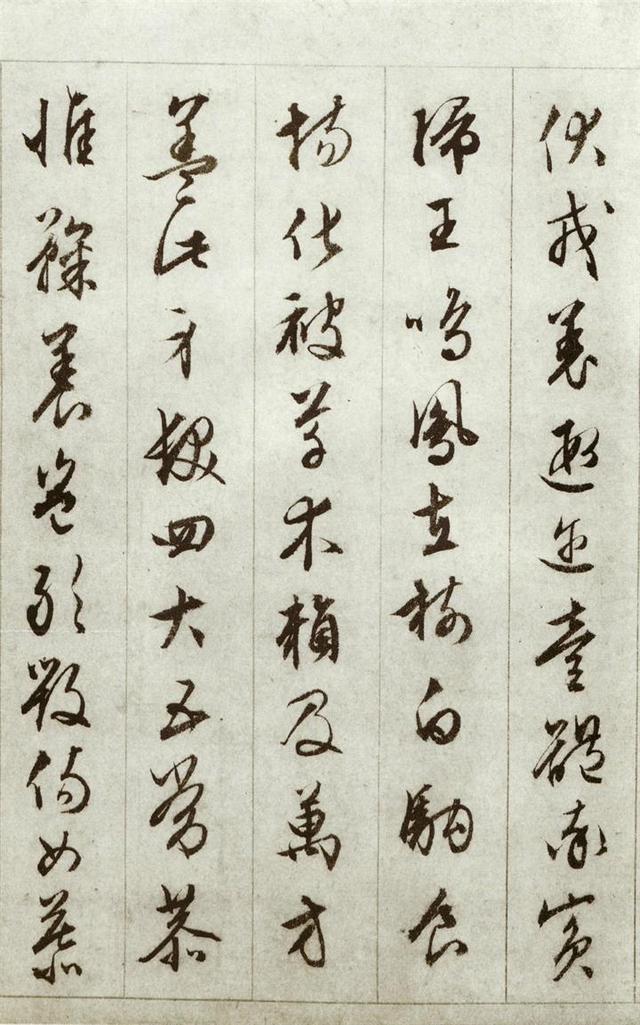 伏戎羌遐邇壹體率賓
歸王鳴鳳在樹白駒食
場化被草木賴及萬方
蓋此身髮四大五常恭
惟鞠養豈敢毀傷女慕